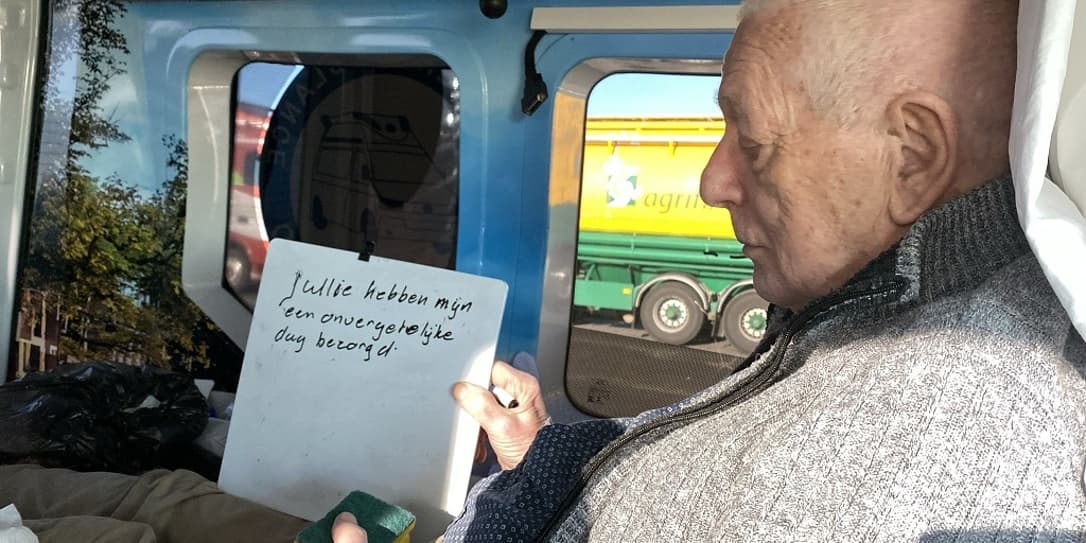 Jullie hebben mijn
een onvergetelijke
dag bezorgd.